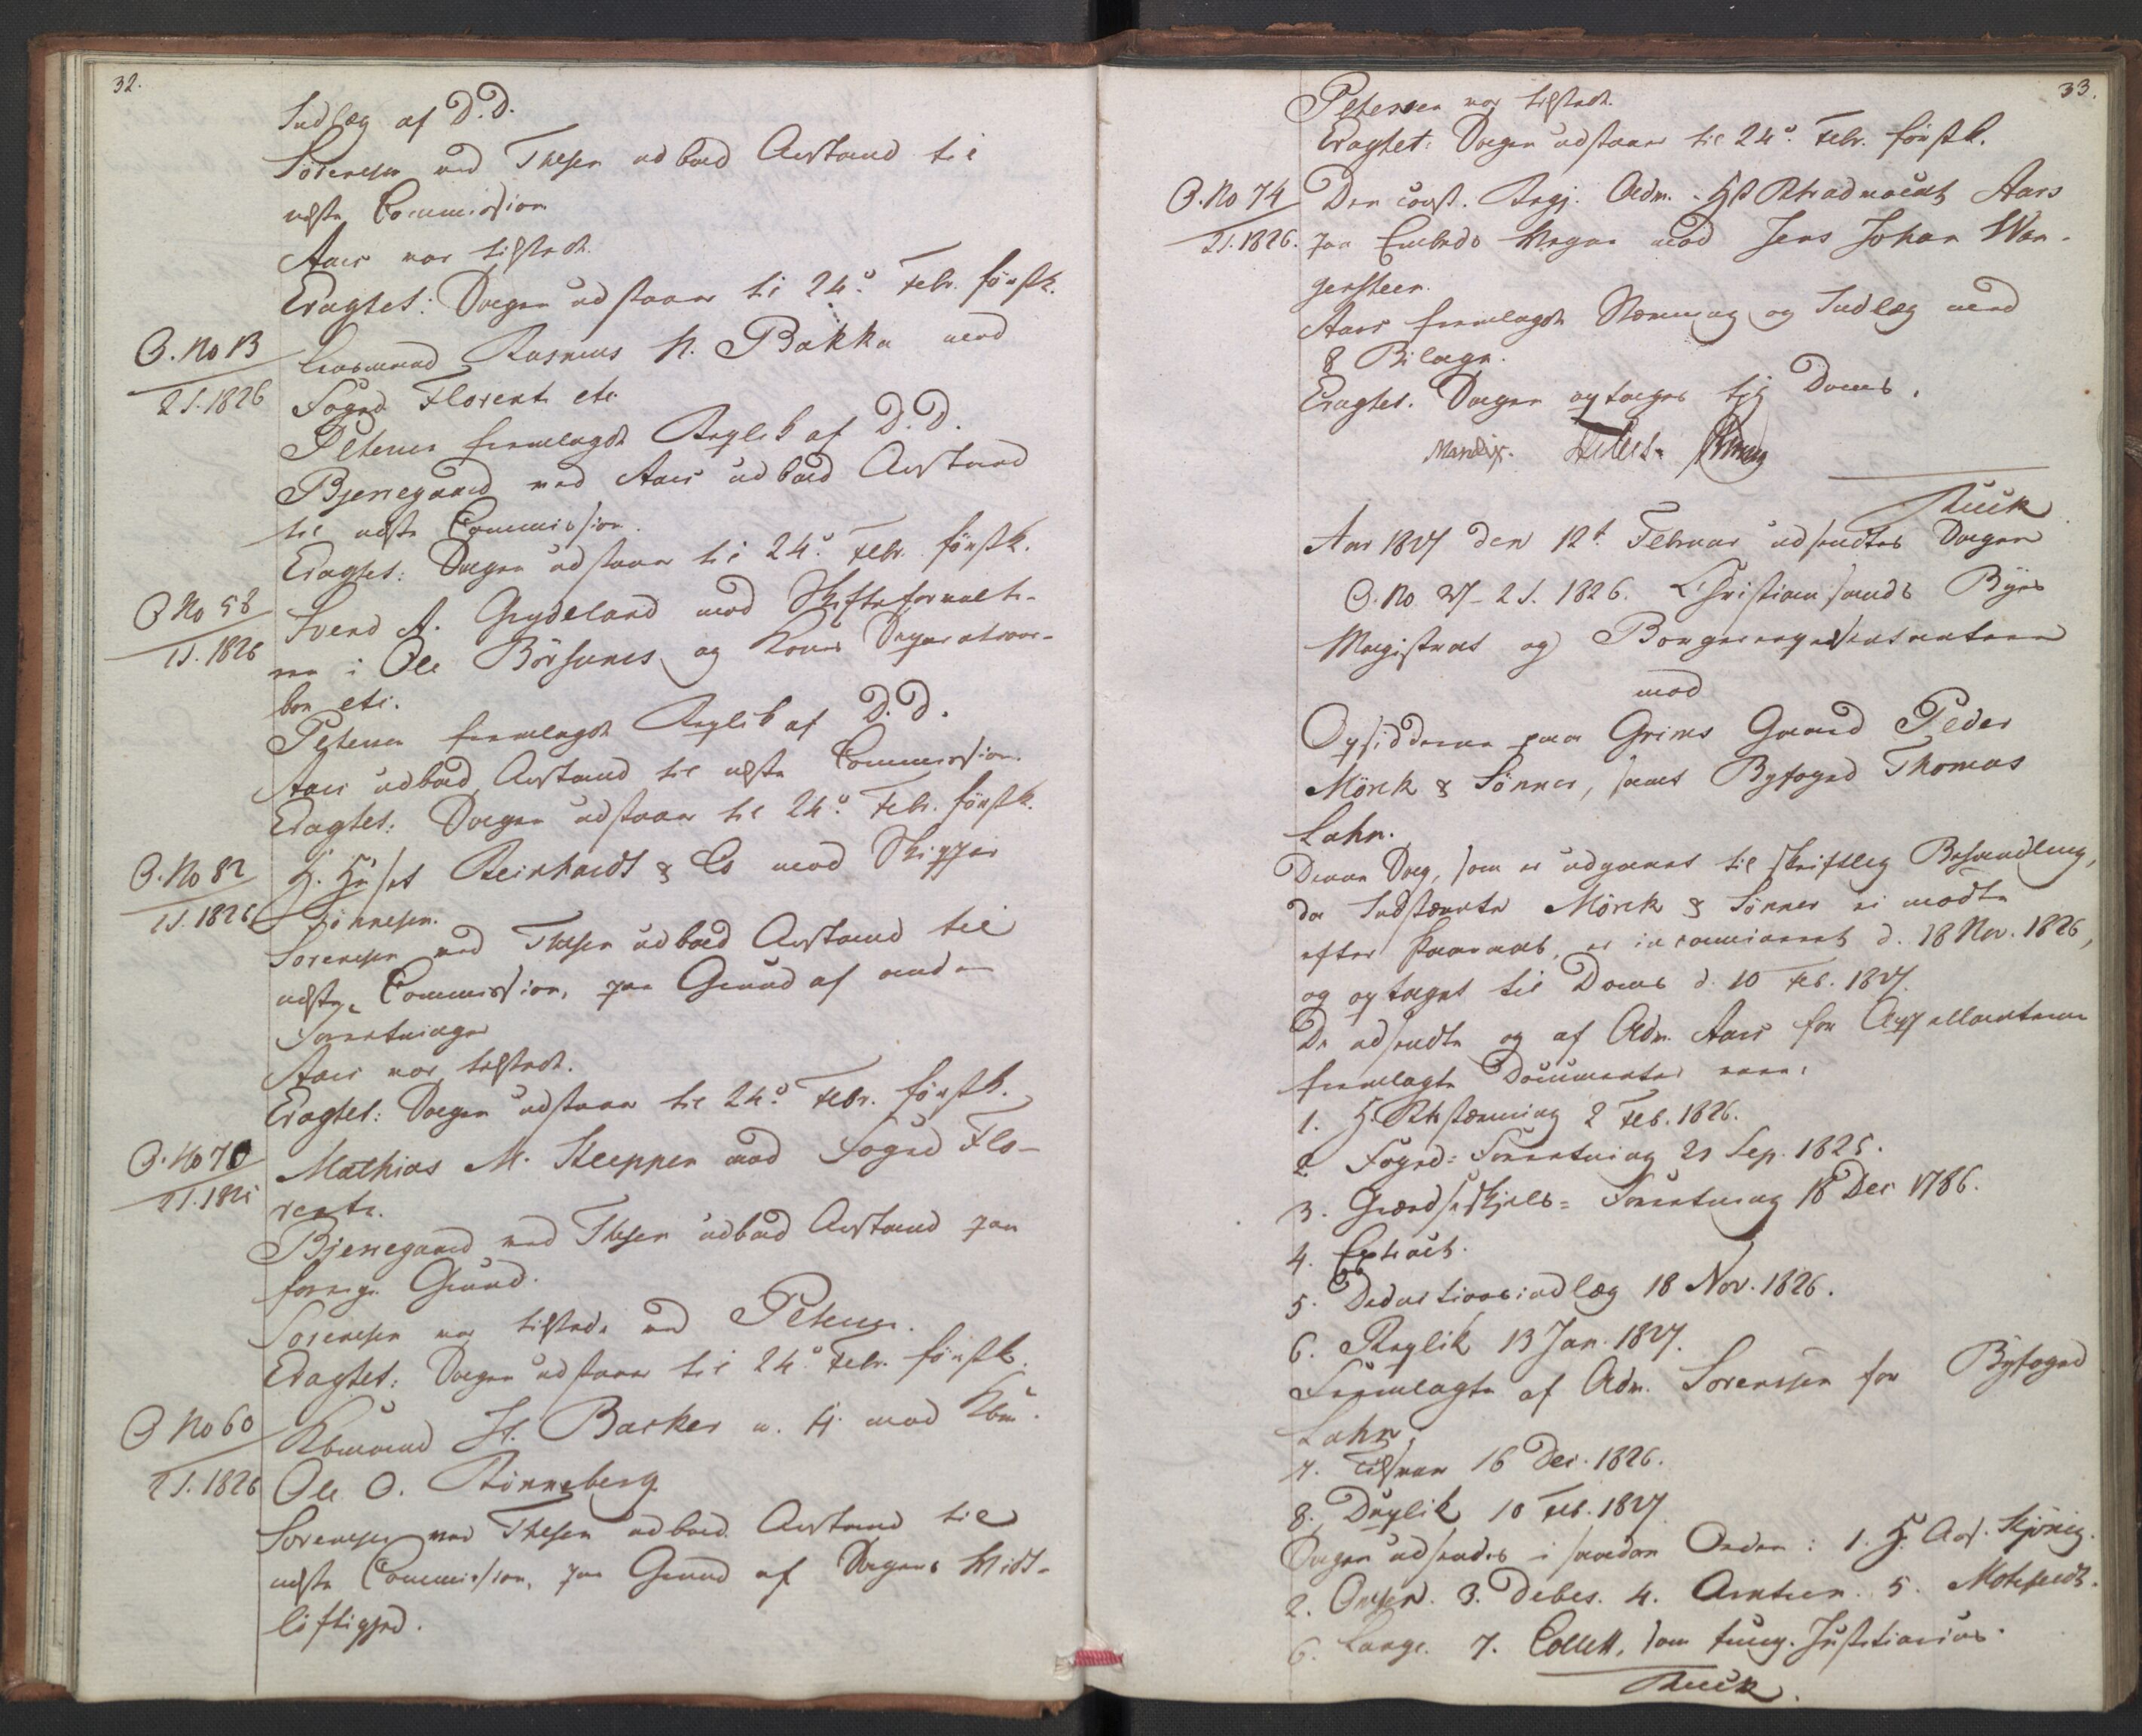 32.
Indlæg af D.D.
Sörensen ved Thesen udbad Anstand til
næste Commission
Aars var tilstede.
Eragtet: Sagen udstaar til 24de Febr. förstk.
O. No 13
2 S. 1826
Rasmus N. Bakka mod
Foged Florentz etc.
Petersen fremlagde Replik af D.D.
Bjerregaard ved Aars udbad Anstand
til næste Commission.
Eragtet: Sagen udstaar til 24de Febr. förstk.
O No 58
1 S. 1826
Svend A. Grydeland mod Skifteforvalte-
ren i Ole Börsunes og Kones
boe etc.
Petersen fremlagde Replik af D.D.
Aars udbad Anstand til næste Commission.
Eragtet: Sagen udstaar til 24de Febr. förstk.
O. No 82
1 S. 1826
H. Huset Reinhardt & Co mod Skipper
Tönnesen.
Sorensen ved Thesen udbad Anstand til
næste Commission, paa Grund af andre
Forretninger
Aars var tilstede.
Eragtet: Sagen udstaar til 24de Febr. förstk.
O. No 70
2 S. 1825
Mathias M. Steeppen mod Foged Flo-
rentz.
Bjerregaard ved Thesen udbad Anstand paa
forrige Grund.
Sorensen var tilstede ved Petersen.
Eragtet: Sagen udstaar til 24de Febr. förstk.
O No 60
2 S. 1826
Kbmand H. Barker n. H. mod Kbm.
Ole O. Rönneberg
Sorensen ved Thesen udbad Anstand til
næste Commission, paa Grund af Sagens Vidt-
löftighed.
33.
Petersen var tilstede.
Eragtet: Sagen udstaar til 24de Febr. förstk.
O. No 74
2 S. 1826.
Den const. Regj. Adv. HstRtsadvocat Aars
paa Embeds Vegne mod Jens Johan Wan-
gensteen.
Aars fremlagde Stevning og Indlæg med
8 Bilage.
Eragtet. Sagen optages til Doms.
Aar 1827 den 12te Februar udsendtes Sagen
O. No 27 - 2 S. 1826. Christiansands Byes
Magistrat og Borgerrepræsentantere
mod
Opsidderne paa Grims Gaard Peder
Mörck & Sönner, samt Byfoged Thomas
Lahn.
Denne Sag, som er udgaaet til skriftlig Behandling,
da Indstevnte Mörck & Sönner ei mödte
efter Paaraab, er incamineret d. 18 Nov. 1826,
og optaget til Doms d. 10 Feb. 1827.
De udsendte og af Adv. Aars for Appellanterne
fremlagte Documenter vare:
1. H. Rtsstævning 2 Feb. 1826.
2. Foged-Forretning 21 Sep. 1825.
3. Grændseskjels-Forretning 18 Dec 1786.
4. Extract.
5. Deductionsindlæg 18 Nov. 1826.
6. Replik 13 Jan. 1827.
Fremlagte af Adv. Sorenssen for Byfoged
Lahn:
7. Tilsvar 16 Dec. 1826.
8. Duplik 10 Feb. 1827
Sagen udsendes i saadan Orden: 1. H. Ass.
2. Omsen. 3. Debes. 4. Arntzen. 5. Motzfeldt.
6. Lange. 7. Collett, som fung. Justitiarius.